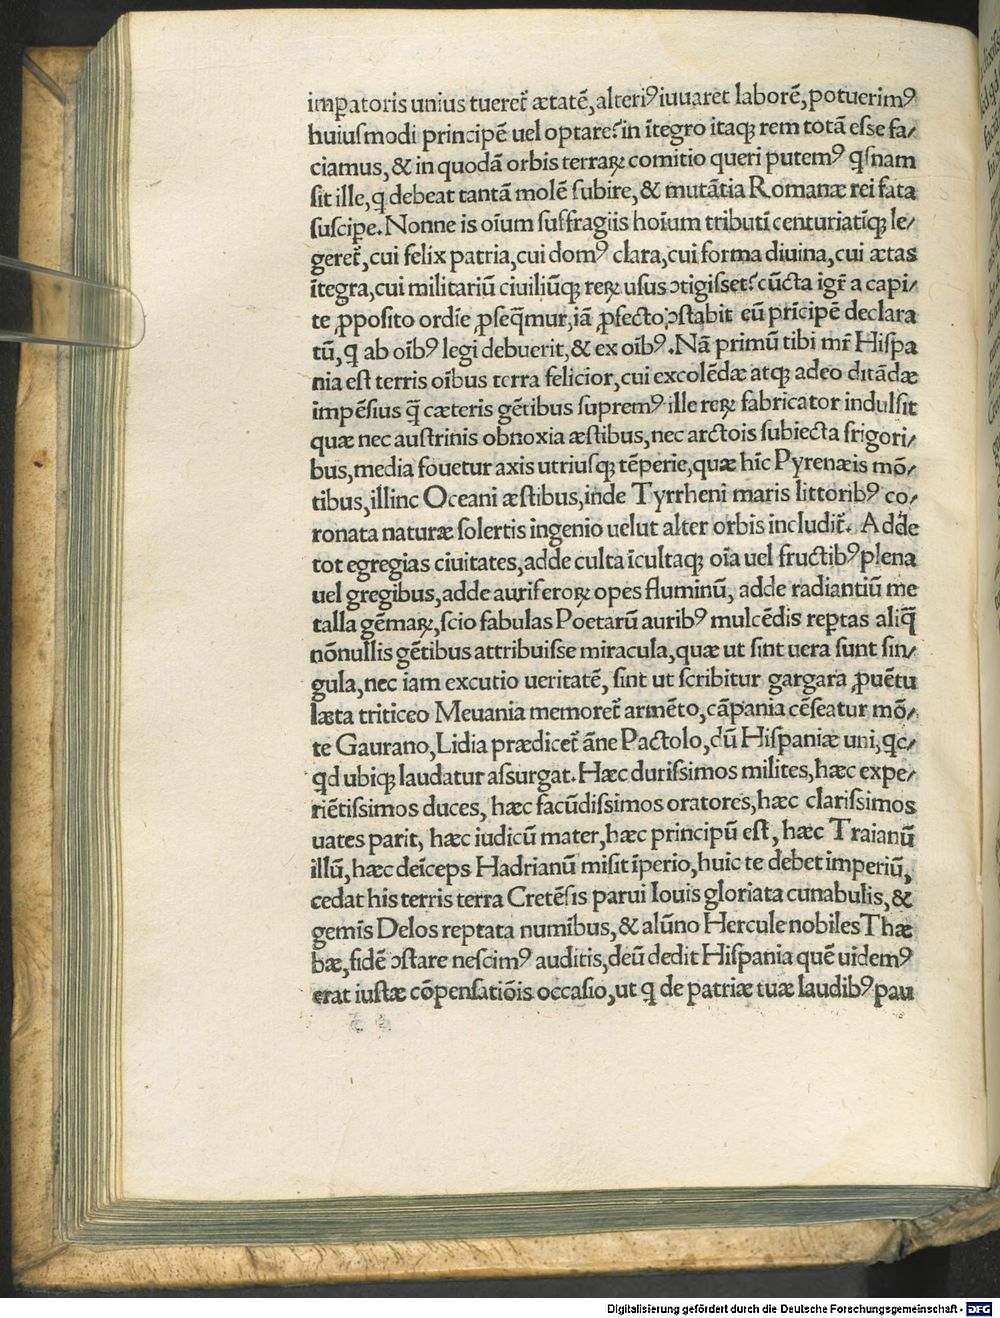 imꝑatoris unius tueret᷑ ætatē, alteriꝰ iuuaret laborē, potuerimꝰ
huiuſmodi principē uel optare? in ītegro itaqꝫ rem totā eſſe fa⸗
ciamus, & in quodā orbis terraꝝ comitio queri putemꝰ qſnam
ſit ille, q debeat tantā molē ſubire, & mutātia Romanæ rei fata
ſuſciꝑe. Nonne is oīum ſuffragiis hoīum tributī centuriatīqꝫ le⸗
geret᷑, cui felix patria, cui domꝰ clara, cui forma diuina, cui ætas
ītegra, cui militariū ciuiliūqꝫ reꝝ uſus ꝯtigiſſet? cūcta igr̄ a capi⸗
te ꝓpoſito ordīe ꝓſeq̄mur, iā ꝓfecto ꝯſtabit eū prīcipē declara
tū, q ab oībꝰ legi debuerit, & ex oībꝰ. Nā primū tibi mr̄ Hiſpa
nia eſt terris oībus terra felicior, cui excolēdæ atqꝫ adeo ditādæ
impēſius q̄ cæteris gētibus ſupremꝰ ille reꝝ fabricator indulſit
quæ nec auſtrinis obnoxia æſtibus, nec arctois ſubiecta frigori⸗
bus, media fouetur axis utriuſqꝫ tēperie, quæ hīc Pyrenæis mō⸗
tibus, illinc Oceani æſtibus, inde Tyrrheni maris littoribꝰ co⸗
ronata naturæ ſolertis ingenio uelut alter orbis includit᷑. Adde
tot egregias ciuitates, adde culta īcultaqꝫ oīa uel fructibꝰ plena
uel gregibus, adde auriferoꝝ opes fluminū, adde radiantiū me
talla gēmaꝝ, ſcio fabulas Poetarū auribꝰ mulcēdis reꝑtas aliq̄
nōnullis gētibus attribuiſſe miracula, quæ ut ſint uera ſunt ſin⸗
gula, nec iam excutio ueritatē, ſint ut ſcribitur gargara ꝓuētu
læta triticeo Meuania memoret᷑ armēto, cāpania cēſeatur mō⸗
te Gaurano, Lidia prædicet᷑ āne Pactolo, dū Hiſpaniæ uni, qc⸗
qd ubiqꝫ laudatur aſſurgat. Hæc duriſſimos milites, hæc expe⸗
riētiſſimos duces, hæc facūdiſſimos oratores, hæc clariſſimos
uates parit, hæc iudicū mater, hæc principū eſt, hæc Traianū
illū, hæc deīceps Hadrianū miſit īperio, huic te debet imperiū,
cedat his terris terra Cretēſis parui Iouis gloriata cunabulis, &
gemīs Delos reptata numībus, & alūno Hercule nobiles Thæ
bæ, fidē ꝯſtare neſcimꝰ auditis, deū dedit Hiſpania quē uidemꝰ
erat iuſtæ cōpenſatiōis occaſio, ut q de patriæ tuæ laudibꝰ pau
Digitalisierung gefördert durch die Deutsche Forschungsgemeinschaft - DFG